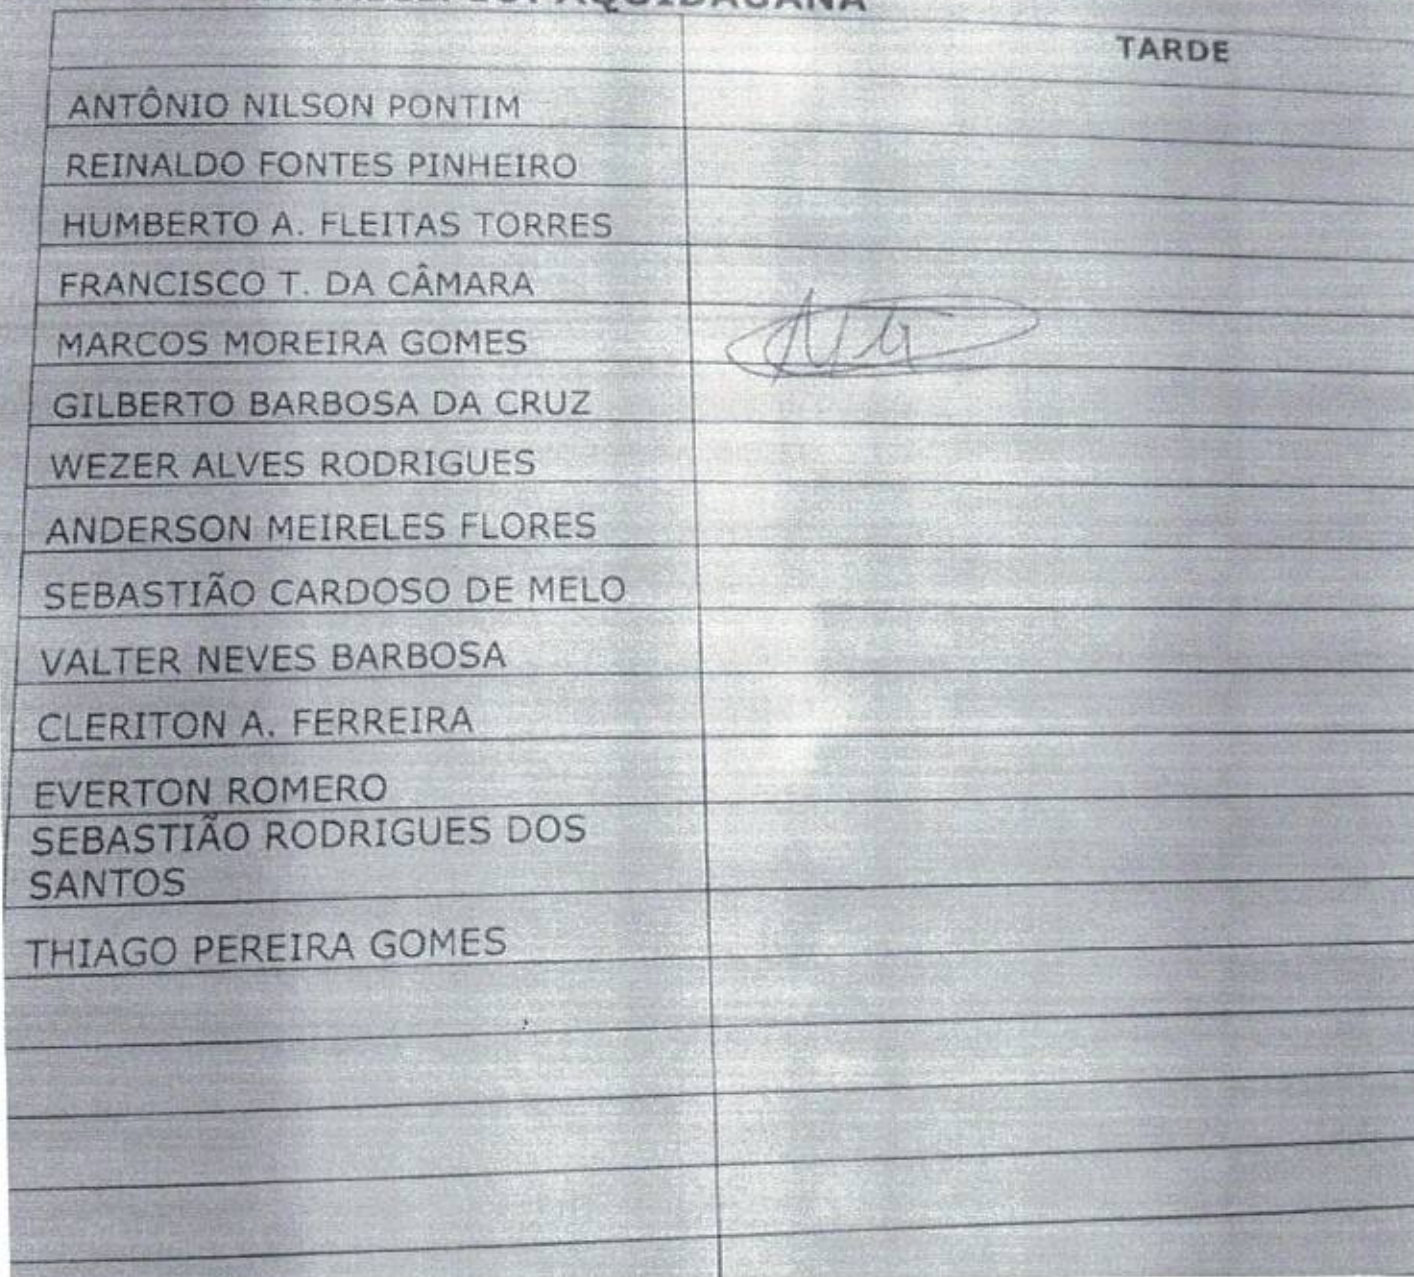 AQUIDAUANA
TARDE
ANTÔNIO NILSON PONTIM
REINALDO FONTES PINHEIRO
HUMBERTO A. FLEITAS TORRES
FRANCISCO T. DA CÂMARA
MARCOS MOREIRA GOMES
GILBERTO BARBOSA DA CRUZ
WEZER ALVES RODRIGUES
ANDERSON MEIRELES FLORES
SEBASTIÃO CARDOSO DE MELO
VALTER NEVES BARBOSA
CLERITON A. FERREIRA
EVERTON ROMERO
SEBASTIÃO RODRIGUES DOS
SANTOS
THIAGO PEREIRA GOMES